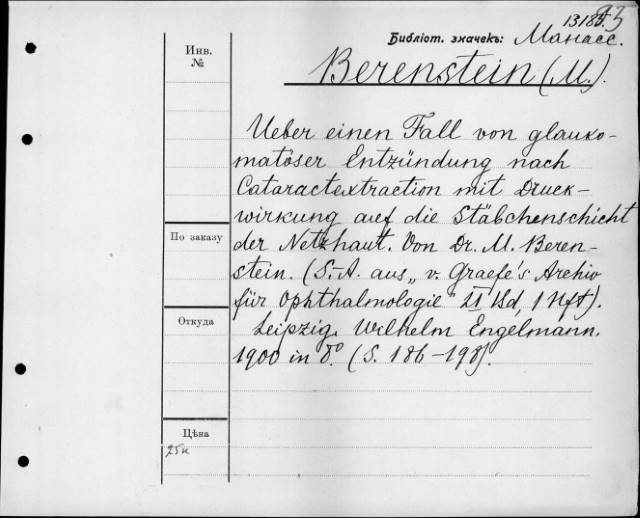 Библіот. значекъ: Манасс.
Инв.
№
Berenstein (M.).
Ueber einen Fall von glauko-
matöser Entzündung nach
Cataractextraction mit Druck-
wirkung auf die Stäbchenschicht
der Netzhaut. Von Dr. M. Beren-
stein. (S.-A. aus „v. Graefe's Archiv
für Ophthalmologie" Bd, 1 Hft).
Leipzig. Wilhelm Engelmann.
1900 in 8°. (S. 186-198).
По заказу
Откуда
Цѣна
25к